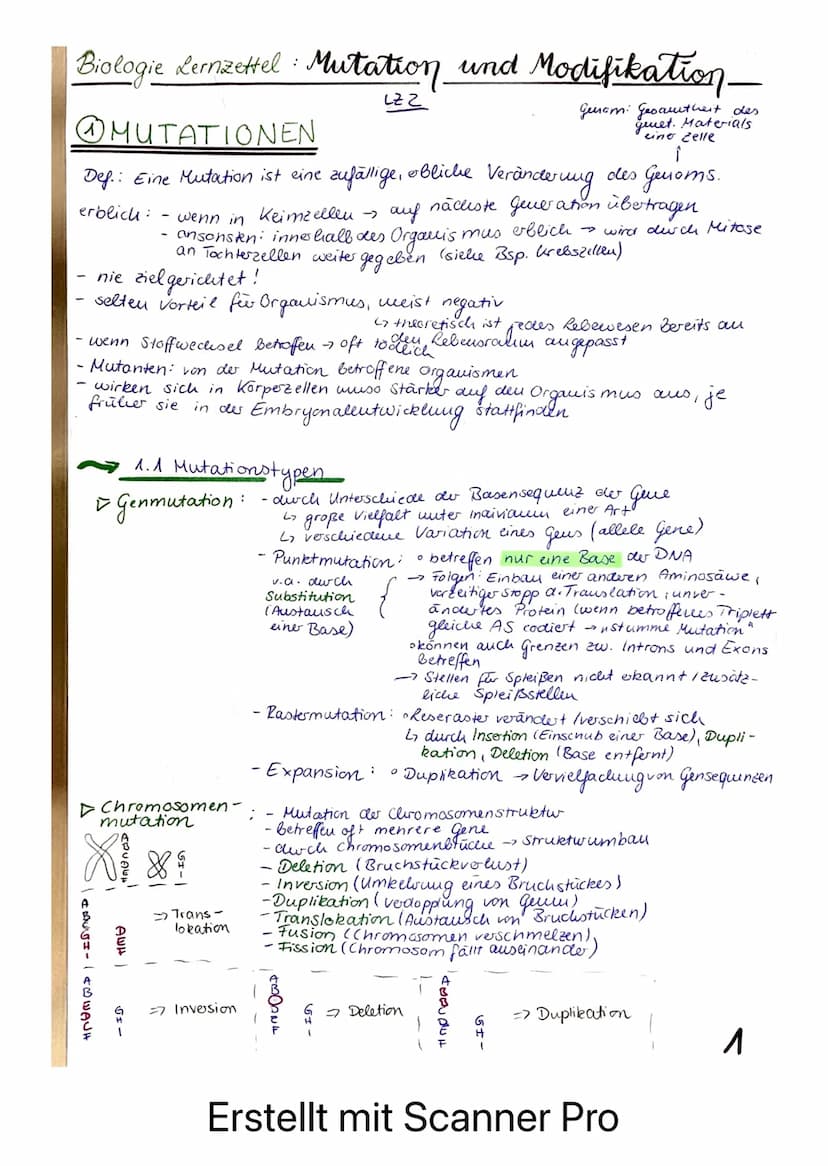 Biologie Lernzettel: Mutation und Modifikation
LZ 2
Genom: Gesamtheit des
genet. Materials
einer Zelle
① MUTATIONEN
Def.: Eine Mutation ist eine zufällige, erbliche Veränderung des Genoms.
erblich: - wenn in Keimzellen → auf nächste Generation übertragen
- ansonsten: innerhalb des Organismus erblich → wird durch Mitose
an Tochterzellen weitergegeben (siehe Bsp. Krebszellen)
- nie zielgerichtet!
- selten Vorteil für Organismus, meist negativ
↳ theoretisch ist jedes Lebewesen bereits an
den Lebensraum angepasst
- wenn Stoffwechsel betroffen → oft tödlich
- Mutanten: von der Mutation betroffene Organismen
- wirken sich in Körperzellen umso stärker auf den Organismus aus, je
früher sie in der Embryonalentwicklung stattfinden
→ 1.1 Mutationstypen
▷ Genmutation: - durch Unterschiede der Basensequenz der Gene
↳ große Vielfalt unter Individuen einer Art
↳ verschiedene Variation eines Gens (allele Gene)
- Punktmutation: ∘ betreffen nur eine Base der DNA
v.a. durch
Substitution
(Austausch
einer Base)
→ Folgen: Einbau einer anderen Aminosäure,
vorzeitiger Stopp d. Translation, unver-
ändertes Protein (wenn betroffenes Triplett
gleiche AS codiert → "stumme Mutation"
∘ können auch Grenzen zw. Introns und Exons
betreffen
→ Stellen für Spleißen nicht erkannt / zusätz-
liche Spleißstellen
- Rastermutation: ∘ Leseraster verändert / verschiebt sich
↳ durch Insertion (Einschub einer Base), Dupli-
kation, Deletion (Base entfernt)
- Expansion: ∘ Duplikation → Vervielfachung von Gensequenzen
▷ Chromosomen-
mutation
: - Mutation der Chromosomenstruktur
- betreffen oft mehrere Gene
- durch Chromosomenbrüche → Strukturumbau
- Deletion (Bruchstückverlust)
- Inversion (Umkehrung eines Bruchstückes)
- Duplikation (Verdopplung von Genen)
- Translokation (Austausch von Bruchstücken)
- Fusion (Chromosomen verschmelzen)
- Fission (Chromosom fällt auseinander)
ABCDEF
GHI
ABCGHI
DEF
⇒ Trans-
lokation
ABEDCF
GHI
⇒ Inversion
AB
DEF
GHI
⇒ Deletion
ABBCDEF
GHI
⇒ Duplikation
1
Erstellt mit Scanner Pro